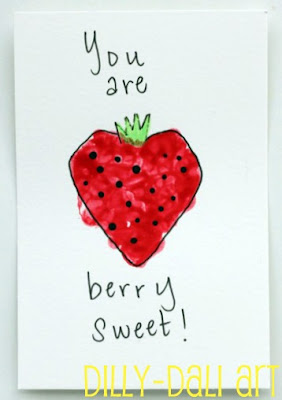 You
are
berry
sweet!
DILLY-DALI ART